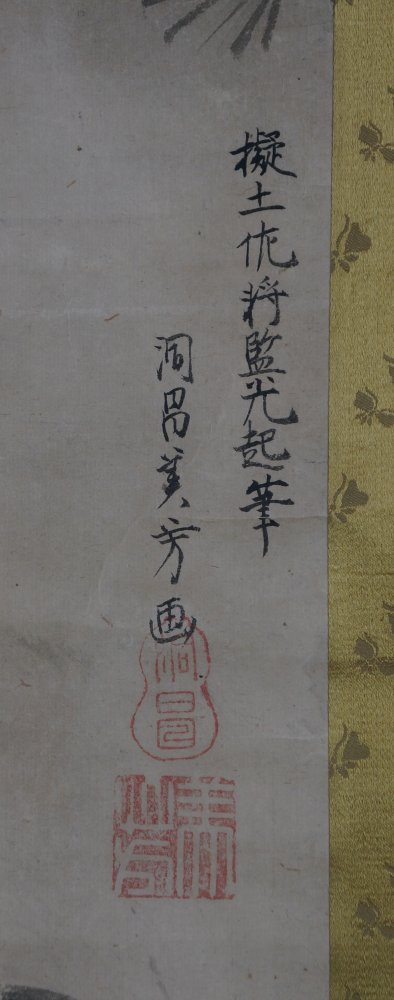 擬土佐将監光起筆
洞昌美芳画
洞昌